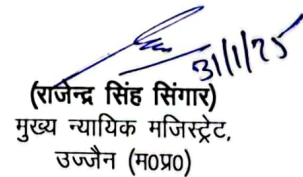 31/1/25
(राजेन्द्र सिंह सिंगार)
मुख्य न्यायिक मजिस्ट्रेट,
उज्जैन (म0प्र0)